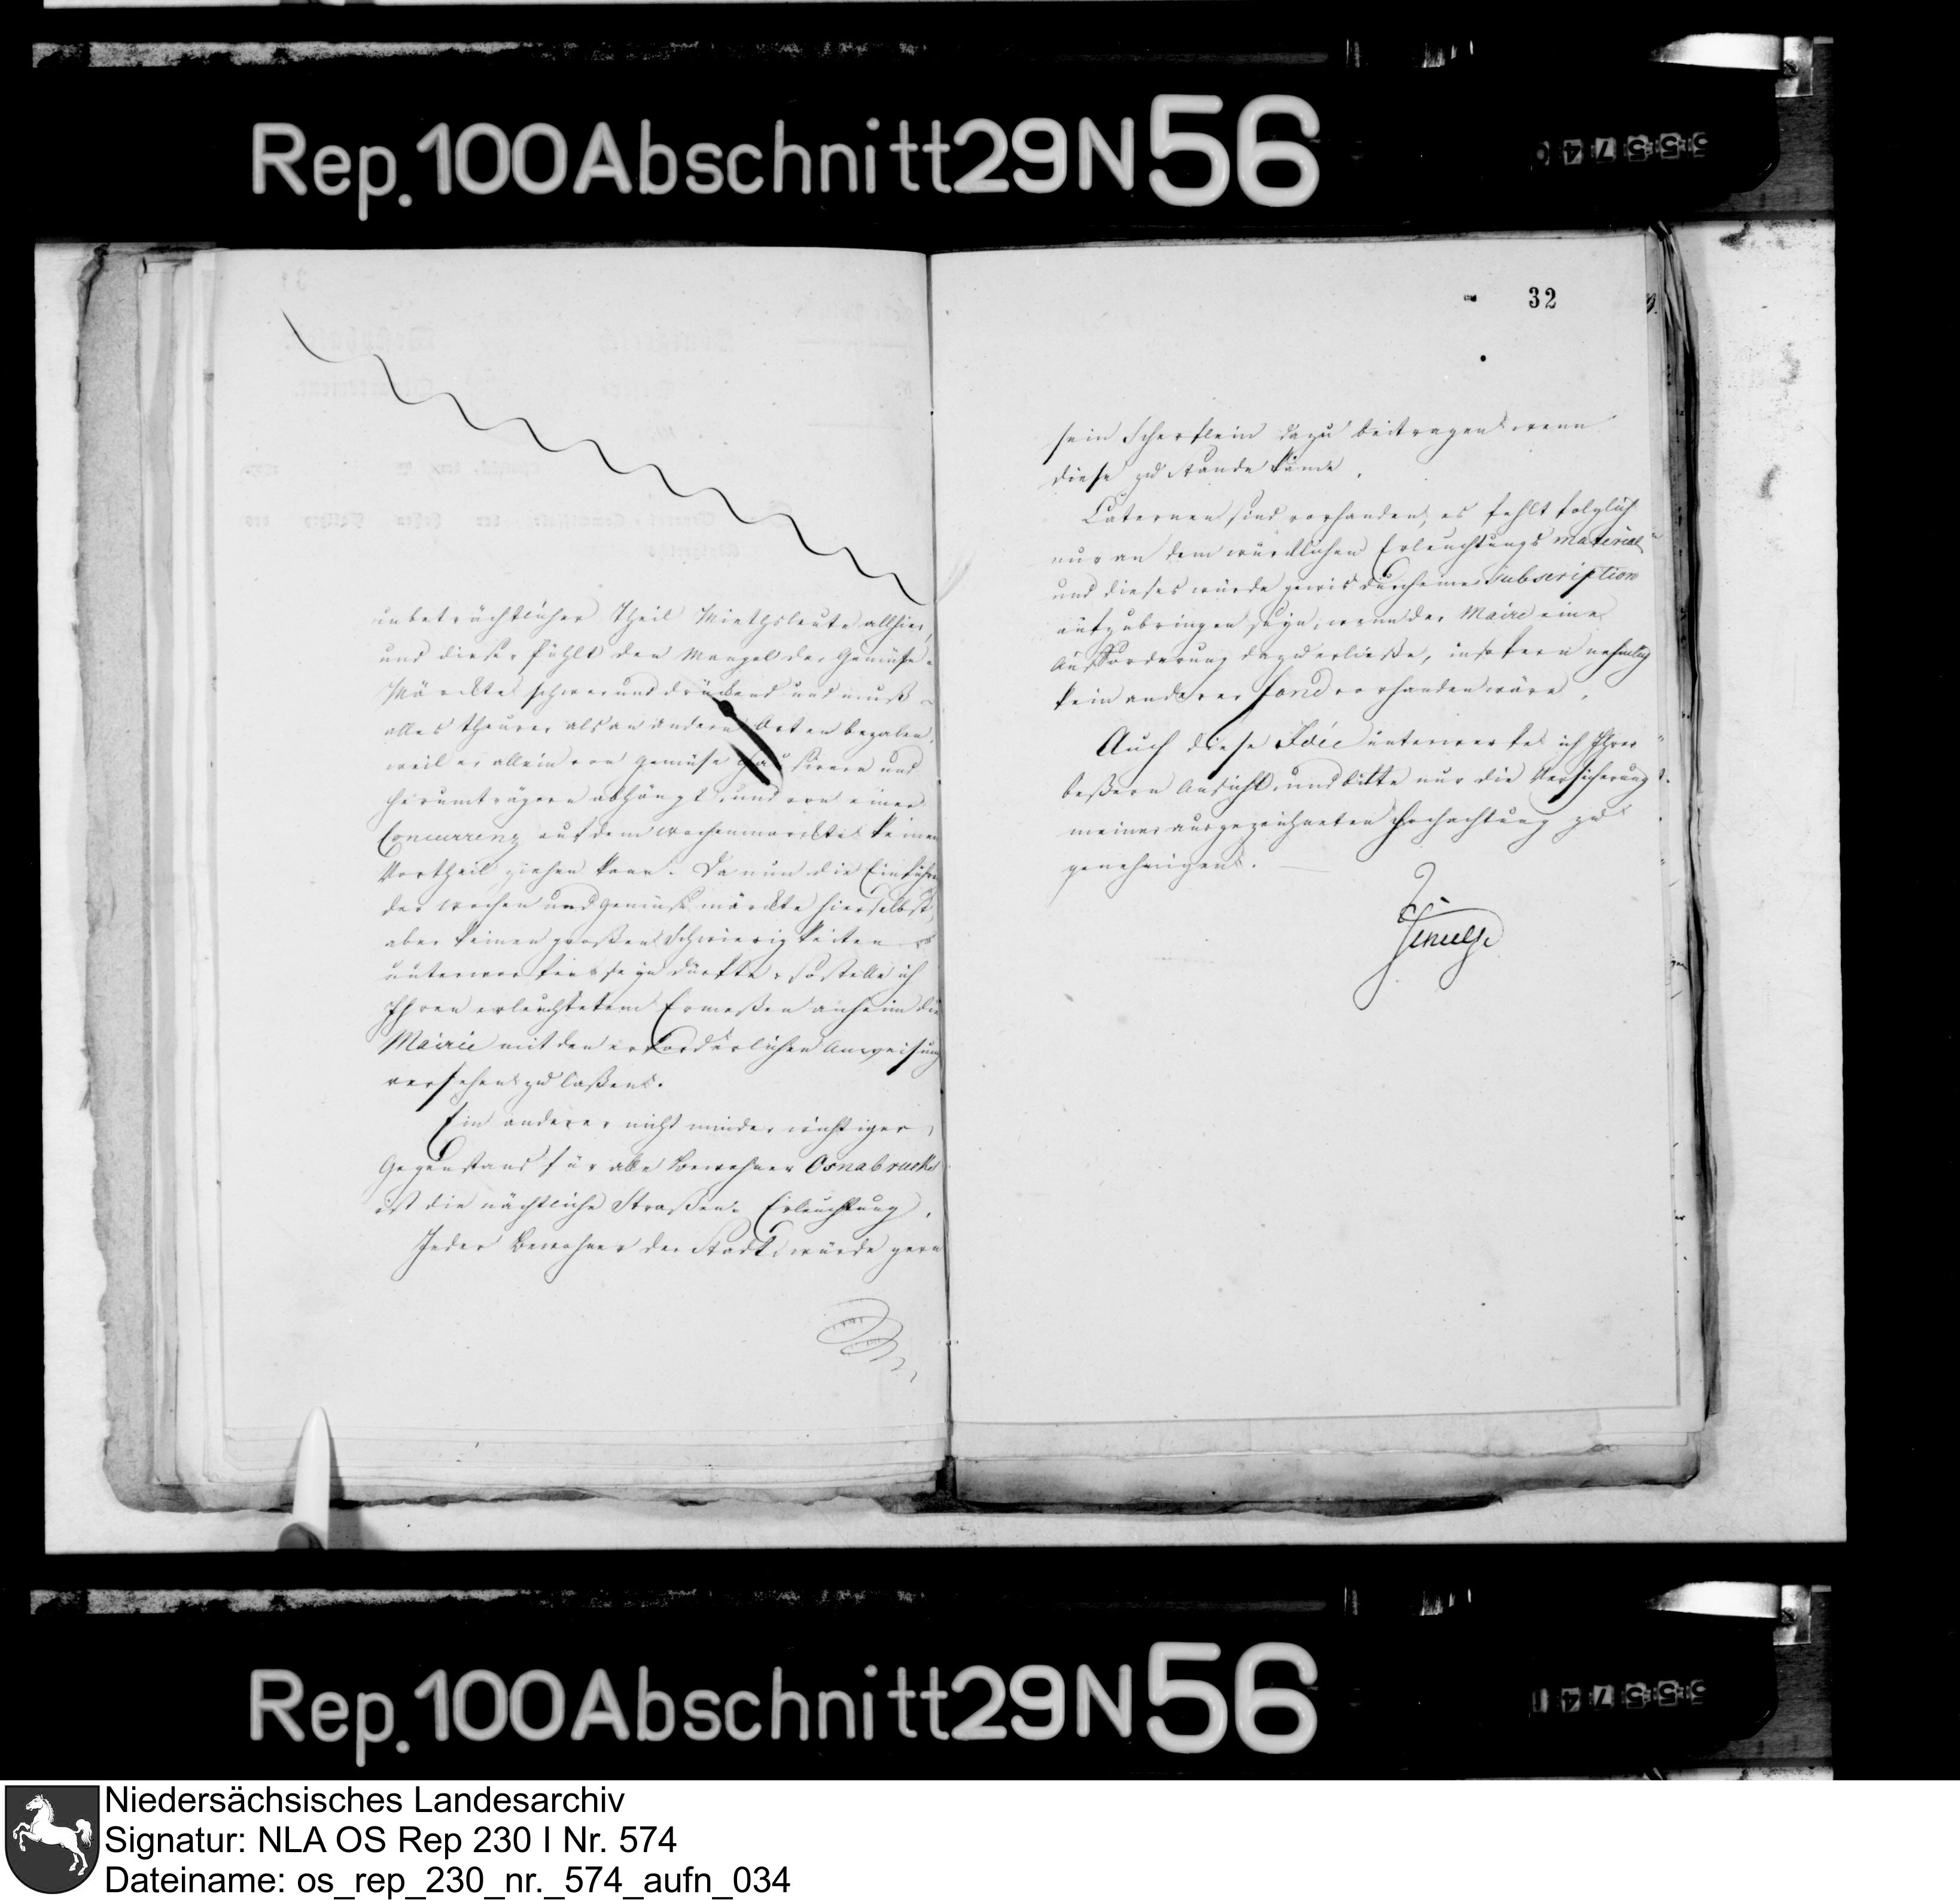 Rep. 100 Abschnitt 29 N 56
unbeträchtlicher Theil Miethsleute allhier,
und dieser fühlt den Mangel der Gemüse-
Märckte schwer und drückend und muß
alles theurer als an andern Orten bezalen,
weil er allein von Gemüse Hausirern und
herumträgern abhängt, und von einer
Concurrenz auf dem wochenmarckte keinen
Vortheil ziehen kann. Da nun die Einführ
der wochen und gemüse märckte hierselbst,
aber keinen großen Schwierigkeiten
unterworfen seyn dürfte, so stelle ich
Ihren erleuchtetem Ermeßen anheim die
Mairie mit den erforderlichen Anweisung
versehen zu laßen.
Ein anderer nicht minder wichtiger
Gegenstand für alle Bewohner Osnabrücks
ist die nächtliche Straßen-Erleuchtung.
Jeder Bewohner der Stadt würde gern
32
sein Scherflein dazu beitragen wenn
diese zu Stande käme.
Laternen sind vorhanden, es fehlt folglich
nur an dem würcklichen Erleuchtungs material
und dieses würde gewis durch eine Subscription
aufzubringen seyn, wenn der Maire eine
Aufforderung dazu erließe, insofern nehmlich
kein anderer fond vorhanden wäre.
Auch diese Idée unterwerfe ich Ihrer
beßern Ansicht, und bitte nur die Versicherung
meiner ausgezeichneten Hochachtung zu
genehmigen.
Rep. 100 Abschnitt 29 N 56
Niedersächsisches Landesarchiv
Signatur: NLA OS Rep 230 I Nr. 574
Dateiname: os_rep_230_nr._574_aufn_034